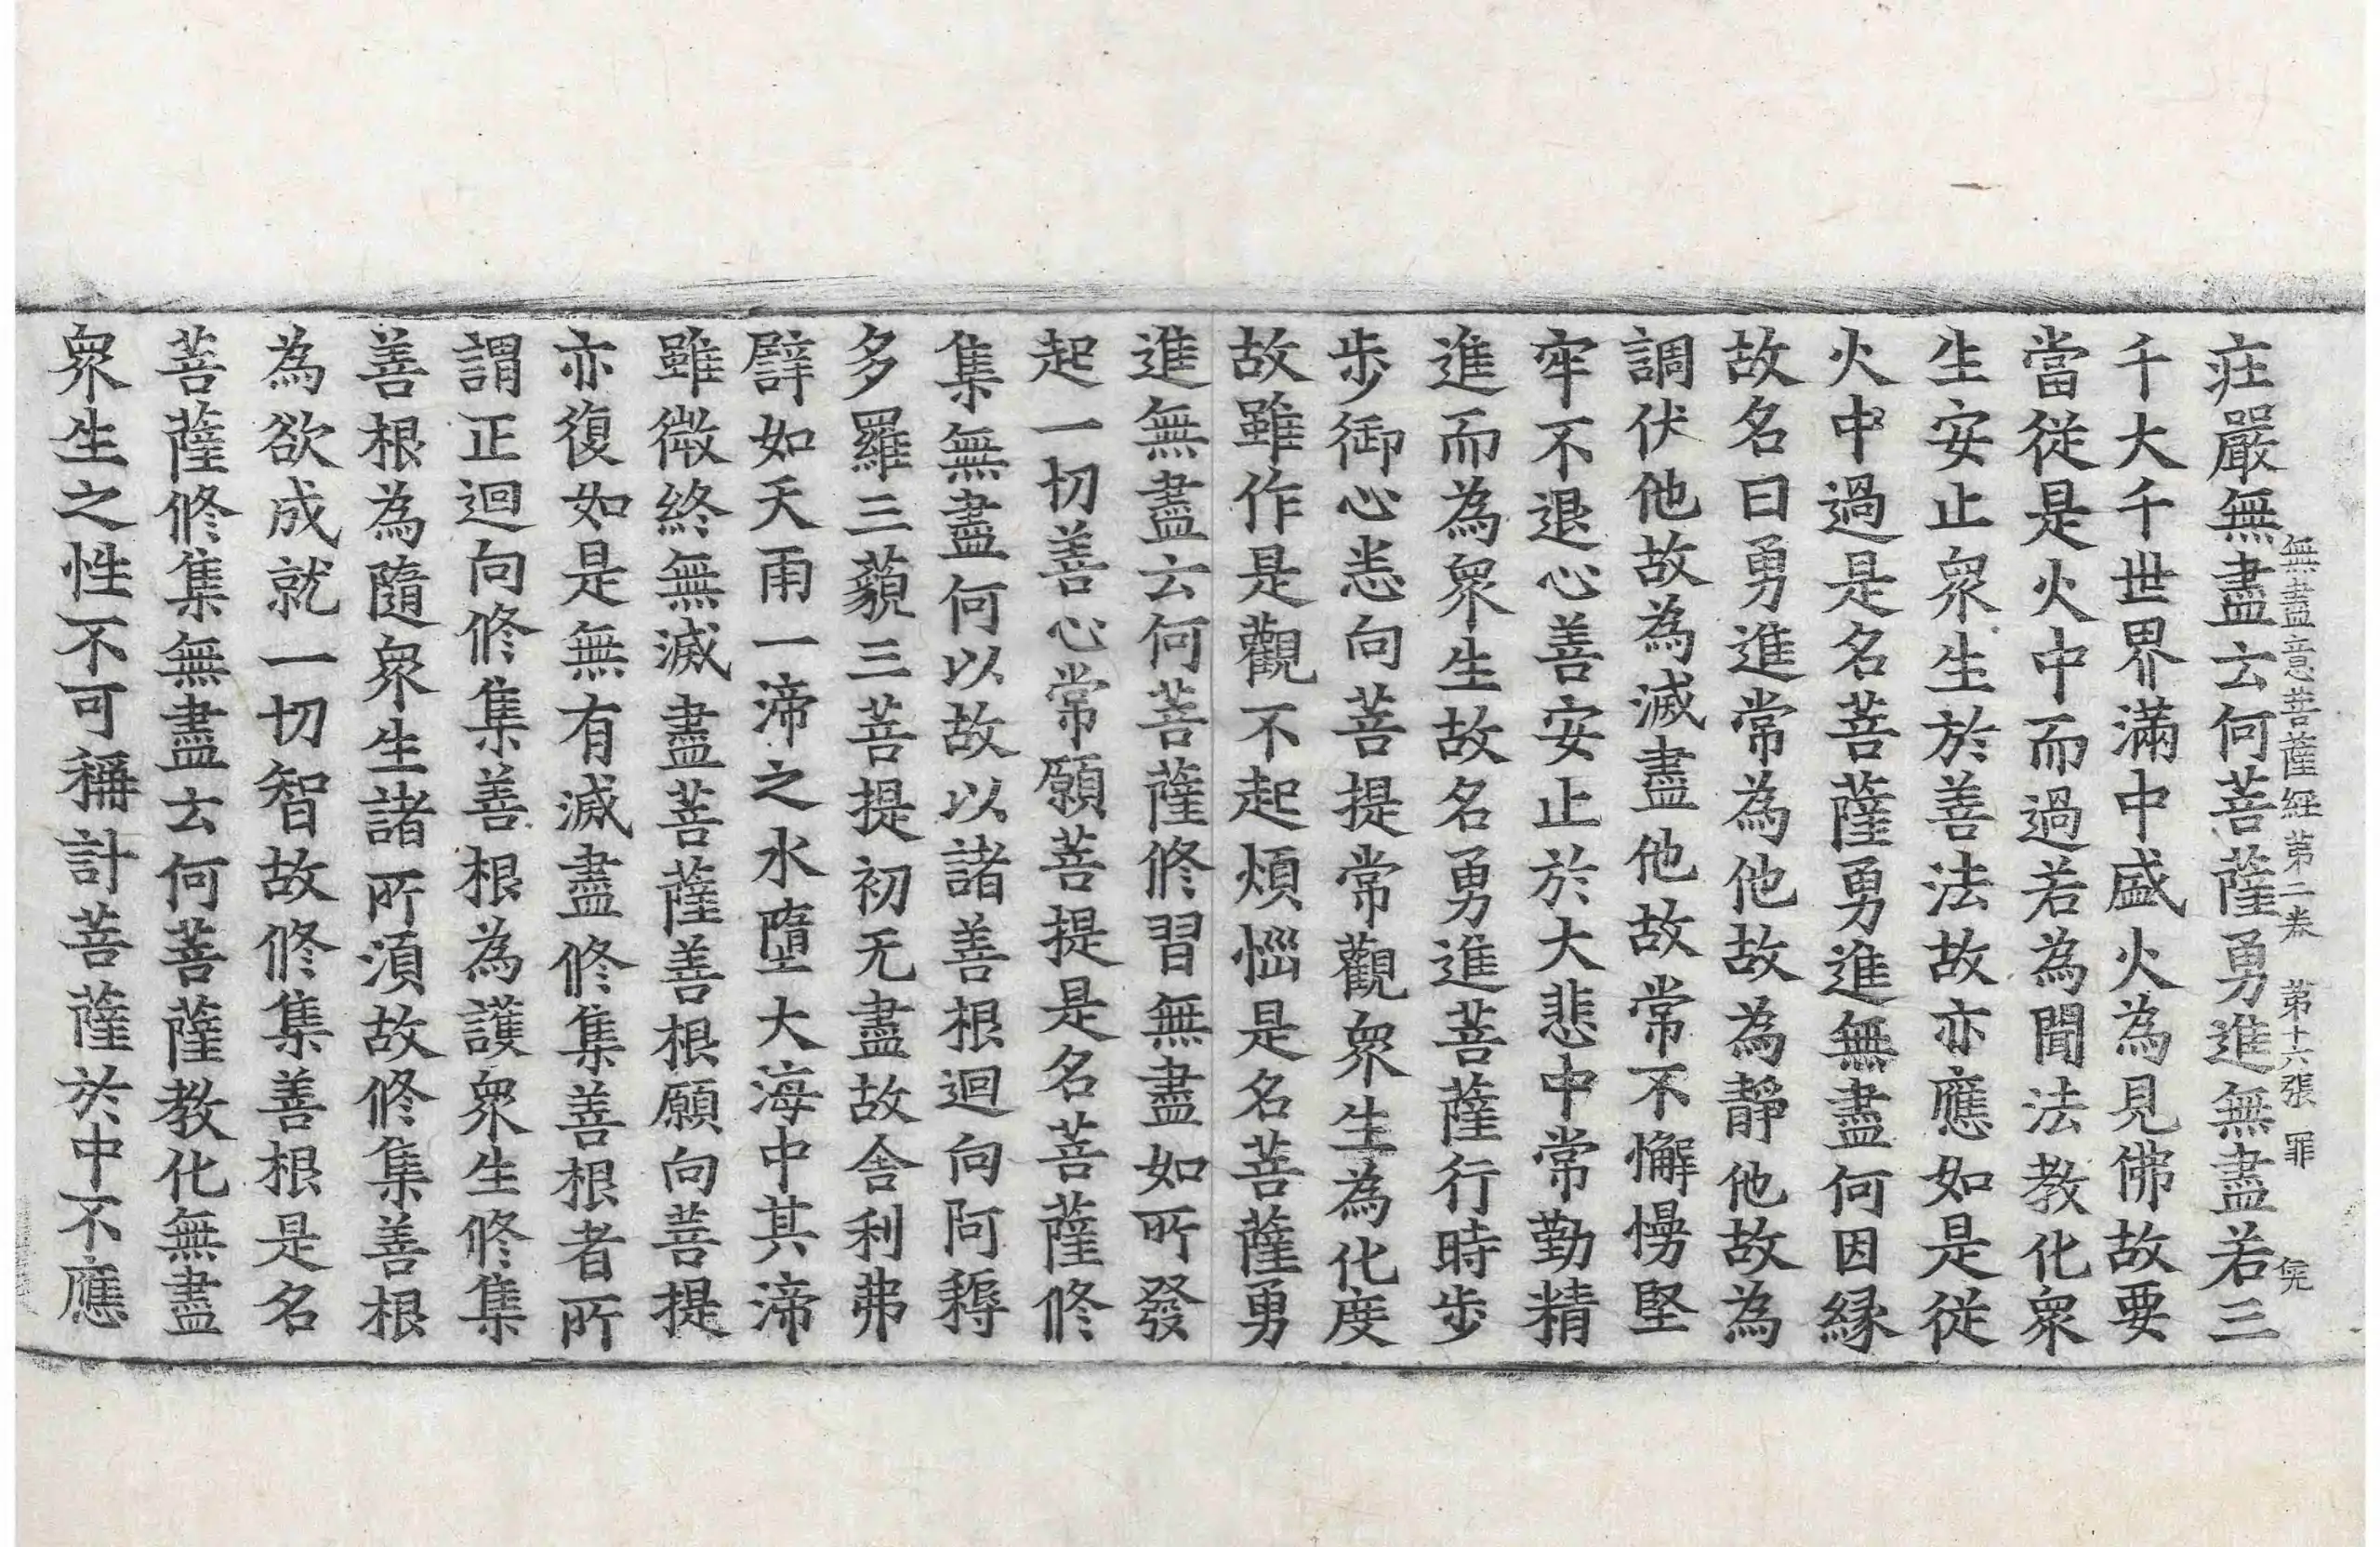 無盡意菩薩經第二卷 第十六張 罪
莊嚴無盡云何菩薩勇進無盡若三
千大千世界滿中盛火為見佛故要
當從是火中而過若為聞法教化衆
生安止衆生於善法故亦應如是從
火中過是名菩薩勇進無盡何因縁
故名曰勇進常為他故為靜他故為
調伏他故為滅盡他故常不懈慢堅
牢不退心善安止於大悲中常勤精
進而為衆生故名勇進菩薩行時步
步御心悉向菩提常觀衆生為化度
故雖作是觀不起煩惱是名菩薩勇
進無盡云何菩薩修習無盡如所發
起一切善心常願菩提是名菩薩修
集無盡何以故以諸善根迴向阿耨
多羅三藐三菩提初无盡故舍利弗
譬如天雨一渧之水墮大海中其渧
雖微終無滅盡菩薩善根願向菩提
亦復如是無有滅盡修集善根者所
謂正迴向修集善根為護衆生修集
善根為隨衆生諸所須故修集善根
為欲成就一切智故修集善根是名
菩薩修集無盡云何菩薩教化無盡
衆生之性不可稱計菩薩於中不應